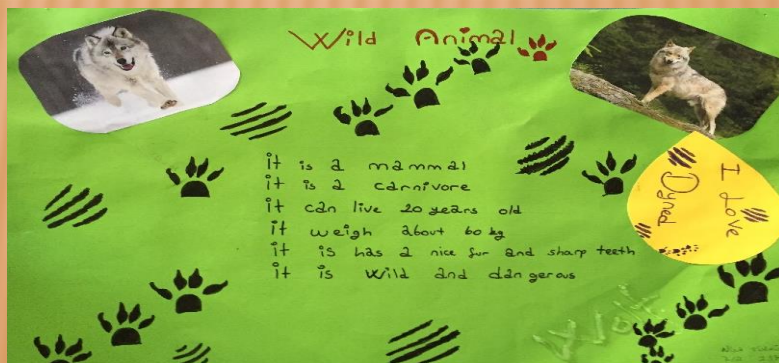 Wild Animal
it is a mammal
it is a carnivore
it can live 20 years old
it weigh about 60 kg
it is has a nice fur and sharp teeth
it is wild and dangerous
I Love
Dyned
Wolf